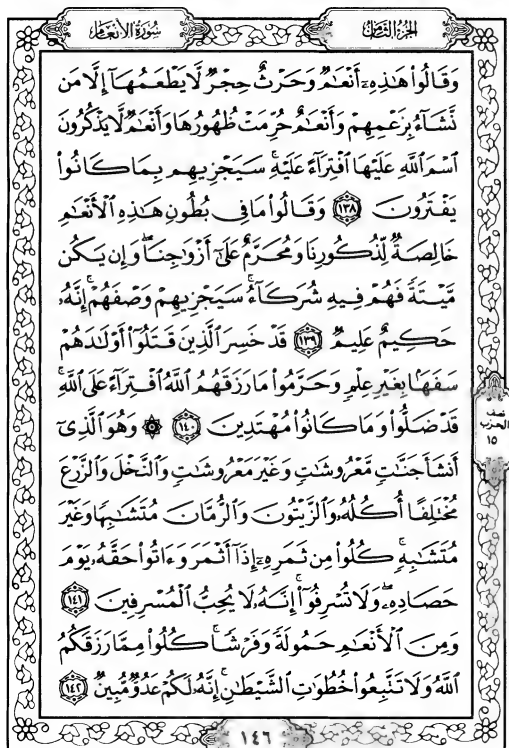 الجزء الثامن
سورة الأنعام
وَقَالُوا۟ هَـٰذِهِۦٓ أَنْعَـٰمٌ وَحَرْثٌ حِجْرٌ لَّا يَطْعَمُهَآ إِلَّا مَن
نَّشَآءُ بِزَعْمِهِمْ وَأَنْعَـٰمٌ حُرِّمَتْ ظُهُورُهَا وَأَنْعَـٰمٌ لَّا يَذْكُرُونَ
ٱسْمَ ٱللَّهِ عَلَيْهَا ٱفْتِرَآءً عَلَيْهِ ۚ سَيَجْزِيهِم بِمَا كَانُوا۟
يَفْتَرُونَ ﴿١٣٨﴾ وَقَالُوا۟ مَا فِى بُطُونِ هَـٰذِهِ ٱلْأَنْعَـٰمِ
خَالِصَةٌ لِّذُكُورِنَا وَمُحَرَّمٌ عَلَىٰٓ أَزْوَٰجِنَا ۖ وَإِن يَكُن
مَّيْتَةً فَهُمْ فِيهِ شُرَكَآءُ ۚ سَيَجْزِيهِمْ وَصْفَهُمْ ۚ إِنَّهُۥ
حَكِيمٌ عَلِيمٌ ﴿١٣٩﴾ قَدْ خَسِرَ ٱلَّذِينَ قَتَلُوٓا۟ أَوْلَـٰدَهُمْ
سَفَهًۢا بِغَيْرِ عِلْمٍ وَحَرَّمُوا۟ مَا رَزَقَهُمُ ٱللَّهُ ٱفْتِرَآءً عَلَى ٱللَّهِ ۚ
قَدْ ضَلُّوا۟ وَمَا كَانُوا۟ مُهْتَدِينَ ﴿١٤٠﴾ ۞ وَهُوَ ٱلَّذِىٓ
أَنشَأَ جَنَّـٰتٍ مَّعْرُوشَـٰتٍ وَغَيْرَ مَعْرُوشَـٰتٍ وَٱلنَّخْلَ وَٱلزَّرْعَ
مُخْتَلِفًا أُكُلُهُۥ وَٱلزَّيْتُونَ وَٱلرُّمَّانَ مُتَشَـٰبِهًا وَغَيْرَ
مُتَشَـٰبِهٍ ۚ كُلُوا۟ مِن ثَمَرِهِۦٓ إِذَآ أَثْمَرَ وَءَاتُوا۟ حَقَّهُۥ يَوْمَ
حَصَادِهِۦ ۖ وَلَا تُسْرِفُوٓا۟ ۚ إِنَّهُۥ لَا يُحِبُّ ٱلْمُسْرِفِينَ ﴿١٤١﴾
وَمِنَ ٱلْأَنْعَـٰمِ حَمُولَةً وَفَرْشًا ۚ كُلُوا۟ مِمَّا رَزَقَكُمُ
ٱللَّهُ وَلَا تَتَّبِعُوا۟ خُطُوَٰتِ ٱلشَّيْطَـٰنِ ۚ إِنَّهُۥ لَكُمْ عَدُوٌّ مُّبِينٌ ﴿١٤٢﴾
نصف
الحزب
١٥
١٤٦